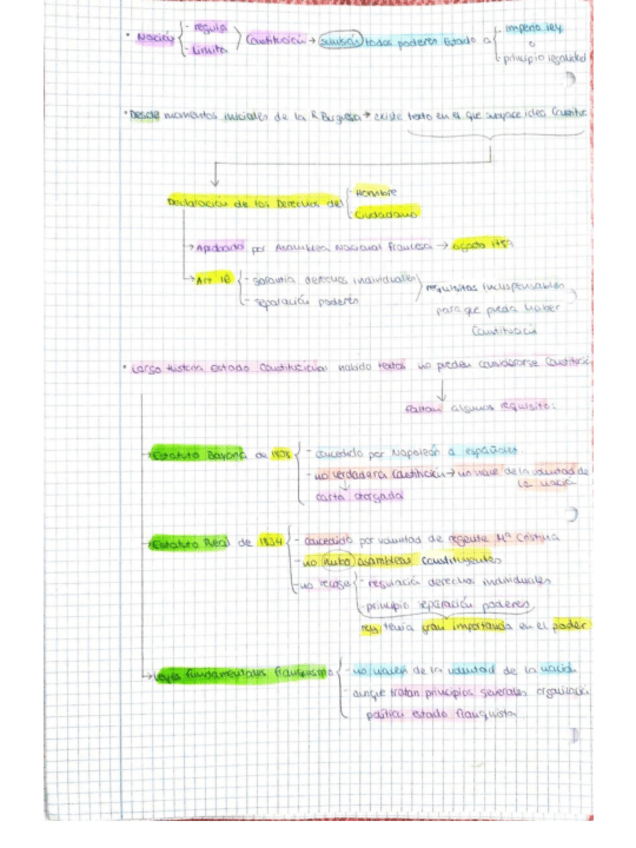 · Noción { - regula
- Limita } Constitución → sumisión todos poderes Estado a { - imperio ley
o
- principio legalidad
· Desde momentos iniciales de la R. Burguesa → existe texto en el que aparece idea
Declaración de los Derechos del { - Hombre
- Ciudadano
→ Aprobada por Asamblea Nacional francesa → agosto
→ Art 16 { - garantía derechos individuales
- separación poderes } requisitos indispensables
para que pueda haber
Constitución
· Largo historia Estado Constitucional habido textos no pueden considerarse
faltan algunos requisitos:
→ Estatuto Bayona de 1808 { - concedido por Napoleón a españoles
- no verdadera Constitución → no nace de la voluntad de
la nación
carta otorgada
→ Estatuto Real de 1834 { - concedido por voluntad de regente Mª Cristina
- no hubo asambleas constituyentes
- no recoge { - regulación derechos individuales
- principio separación poderes
rey tenía gran importancia en el poder
→ Leyes Fundamentales Franquismo { - no nacen de la voluntad de la nación
- aunque tratan principios generales organización
política estado franquista